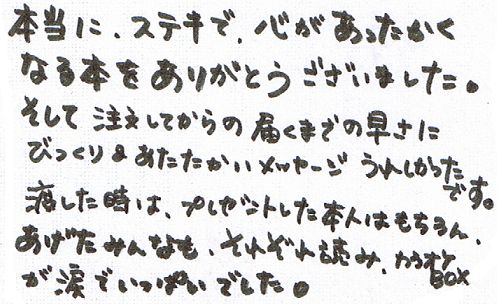 本当に、ステキで、心があったかく
なる本をありがとうございました。
そして注文してからの届くまでの早さに
びっくり&あたたかいメッセージうれしかったです。
渡した時は、プレゼントした本人はもちろん、
あげたみんなも、それぞれ読み、カラオケBOX
が涙でいっぱいでした。